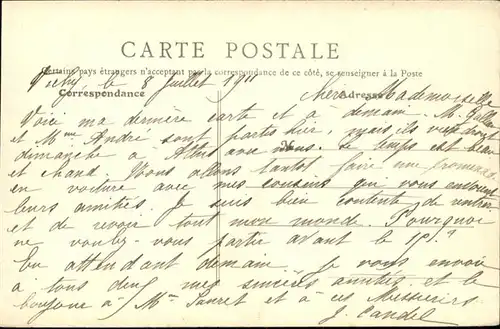 CARTE POSTALE
Certains pays étrangers n'acceptant pas la correspondance de ce côté, se renseigner à la Poste
Correspondance Adresse
Vichy le 8 Juillet 1911
Chère Mademoiselle
Voici ma dernière carte et à demain. M.
et Mme André sont partis hier, mais ils
dimanche à avec nous. Le temps est beau
et chaud. Nous allons tantôt faire une promenade
en voiture avec mes cousins qui vous envoient
leurs amitiés. Je suis bien contente de rentrer
et de revoir tout mon monde. Pourquoi
ne voulez-vous partir avant le
En attendant demain je vous envoie
à tous deux mes sincères amitiés et le
bonjour à Mme et à ces Messieurs
J. Candel